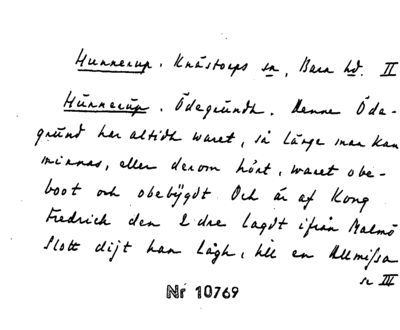 Hunnerup. Knästorps sn, Bara hd. II
Hünnerüp. Ödegründh. Denne Öde-
gründ har altidh waret, så länge man kan
minnas, eller derom hört, waret obe-
boot och obebÿgdt. Och är af Kong
Fredrich den 2:dre lagdt ifrån Malmö
Slott dijt han lågh, till en Allmißa
se III
Nr 10769